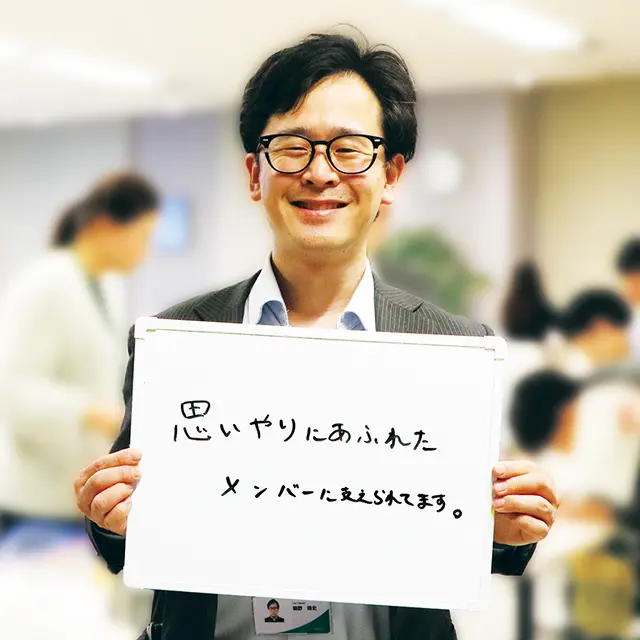 思いやりにあふれた
メンバーに支えられてます。